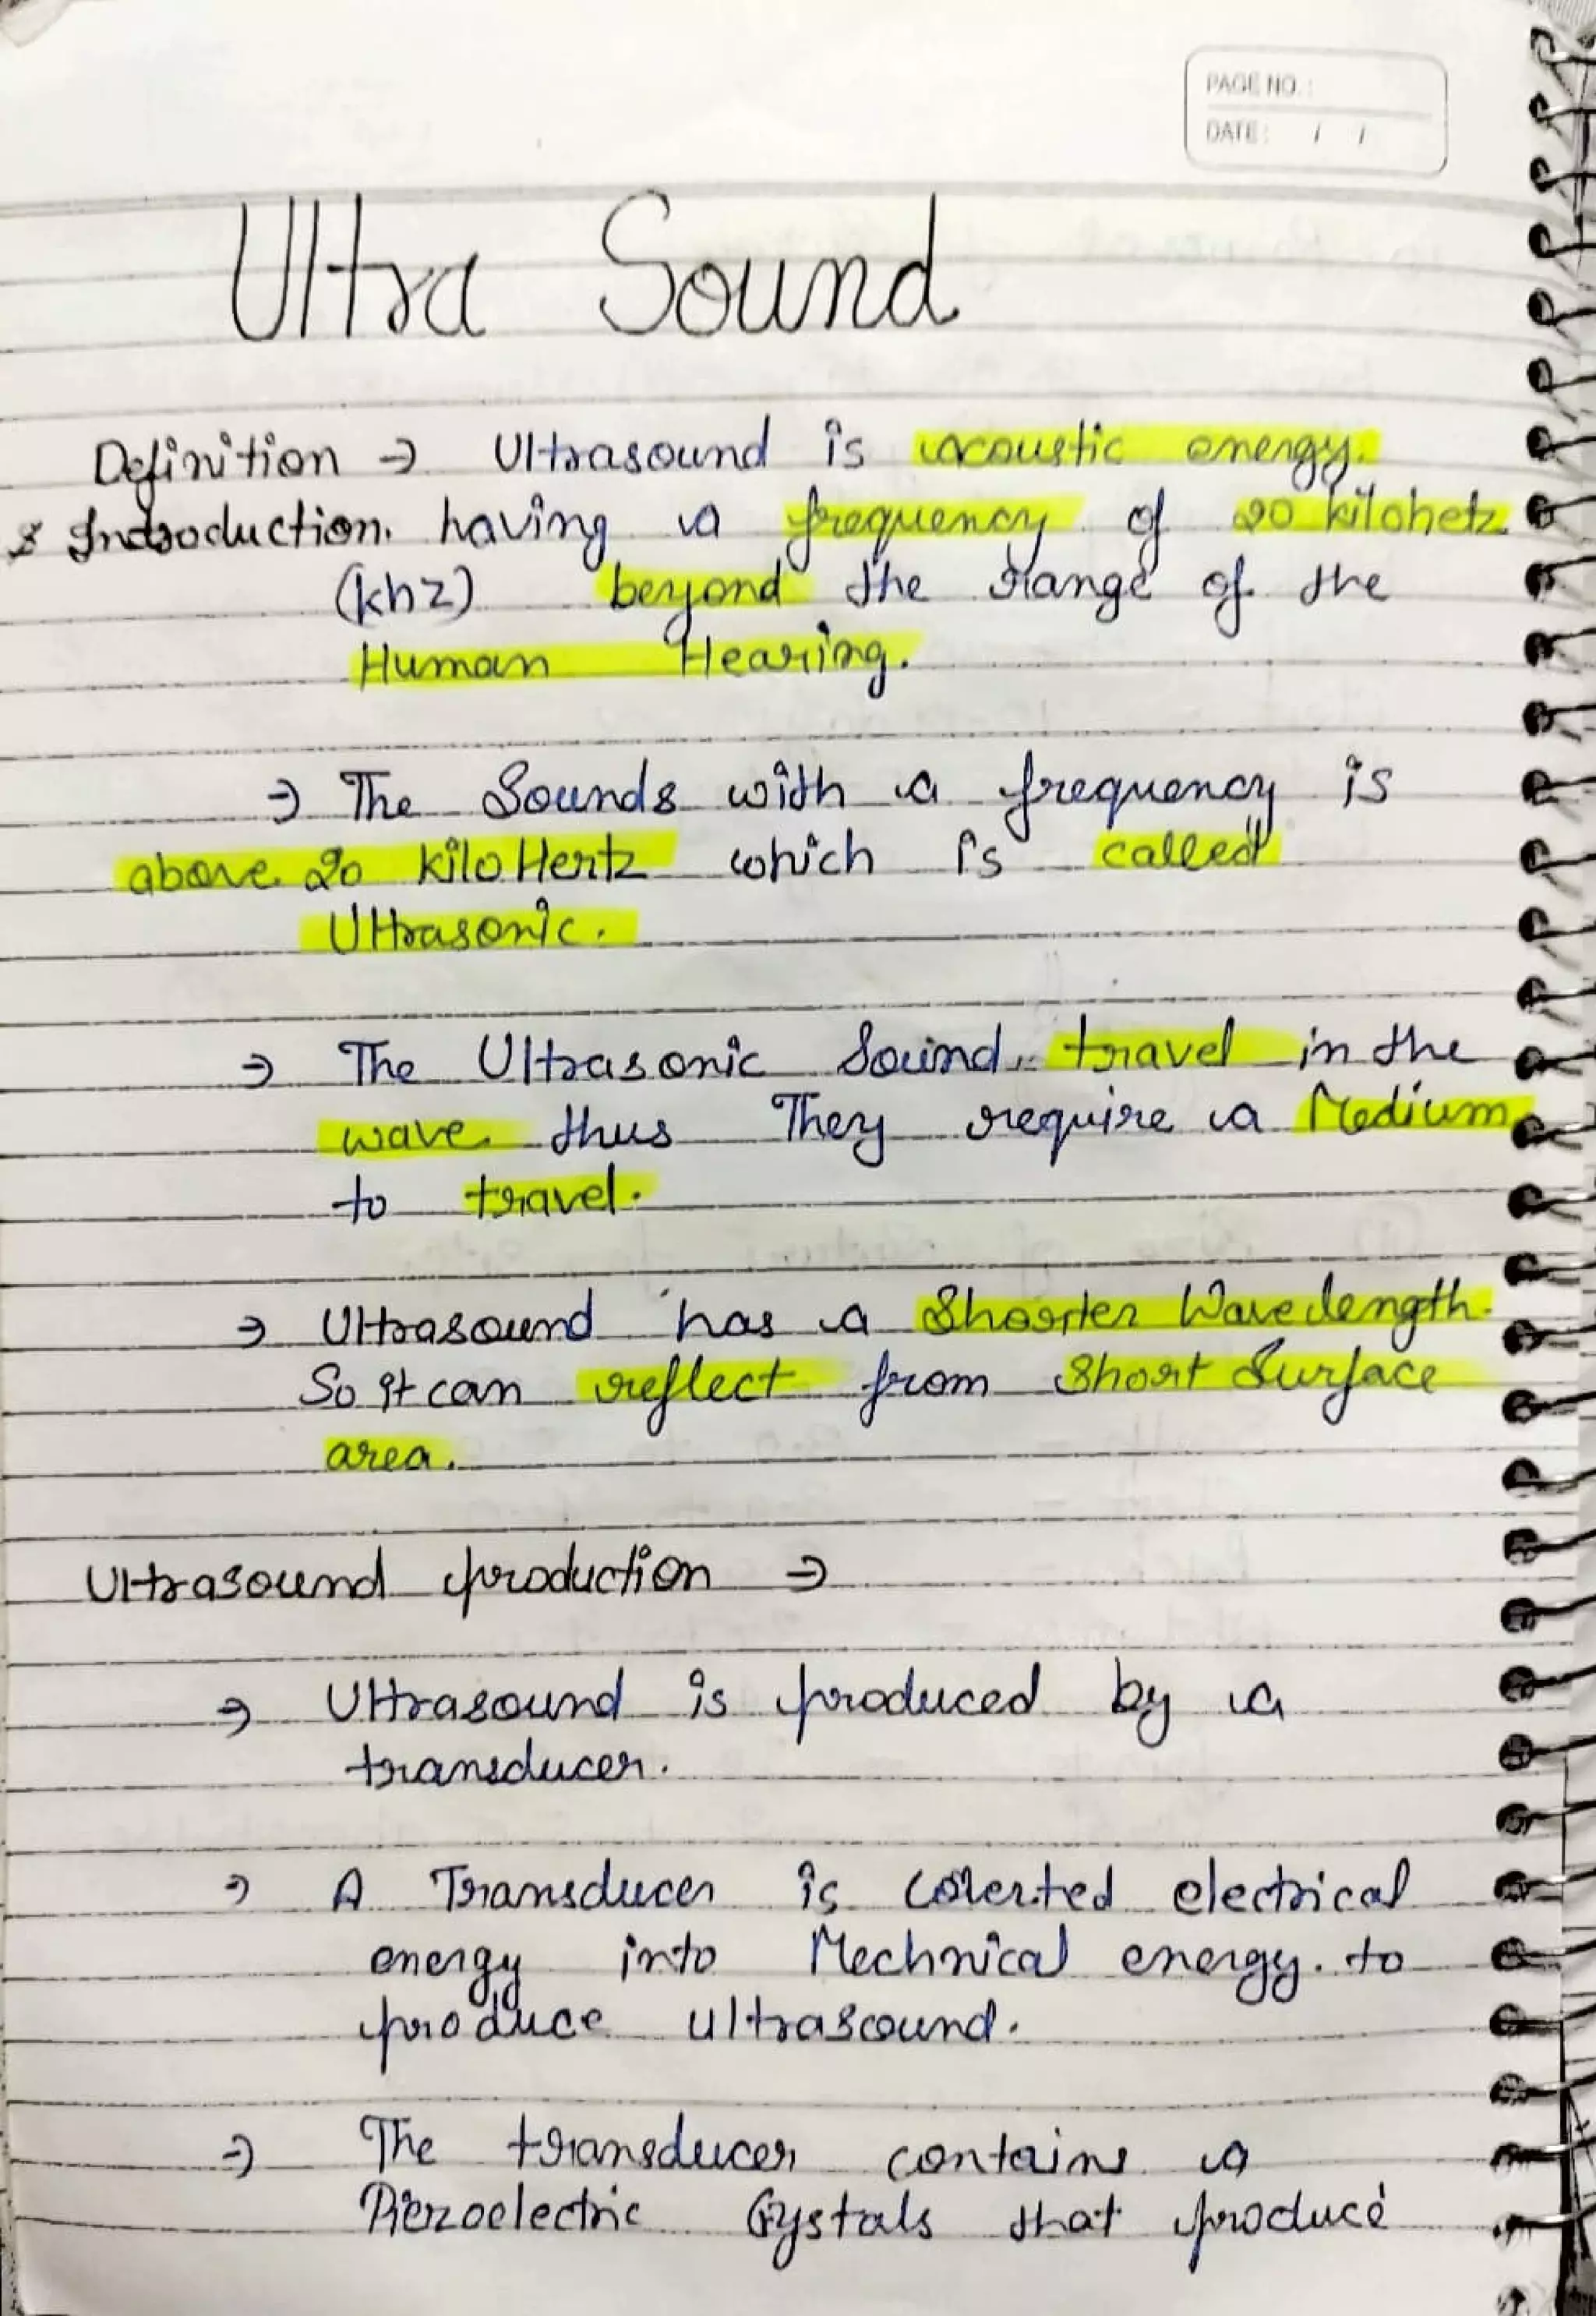 PAGE NO. :
DATE: / /
Ultra Sound
Definition → Ultrasound is acoustic energy.
& Introduction. having a frequency of 20 kilohetz
(khz) beyond the range of the
Human Hearing.
→ The Sounds with a frequency is
above 20 kilo Hertz which is called
Ultrasonic.
→ The Ultrasonic Sound travel in the
wave thus They require a Medium
to travel.
→ Ultrasound has a Shorter Wavelength.
So it can reflect from Short Surface
area.
Ultrasound production →
→ Ultrasound is produced by a
transducer.
→ A Transducer is converted electrical
energy into Mechnical energy. to
produce ultrasound.
→ The transducer contains a
Piezoelectric Crystals that produce